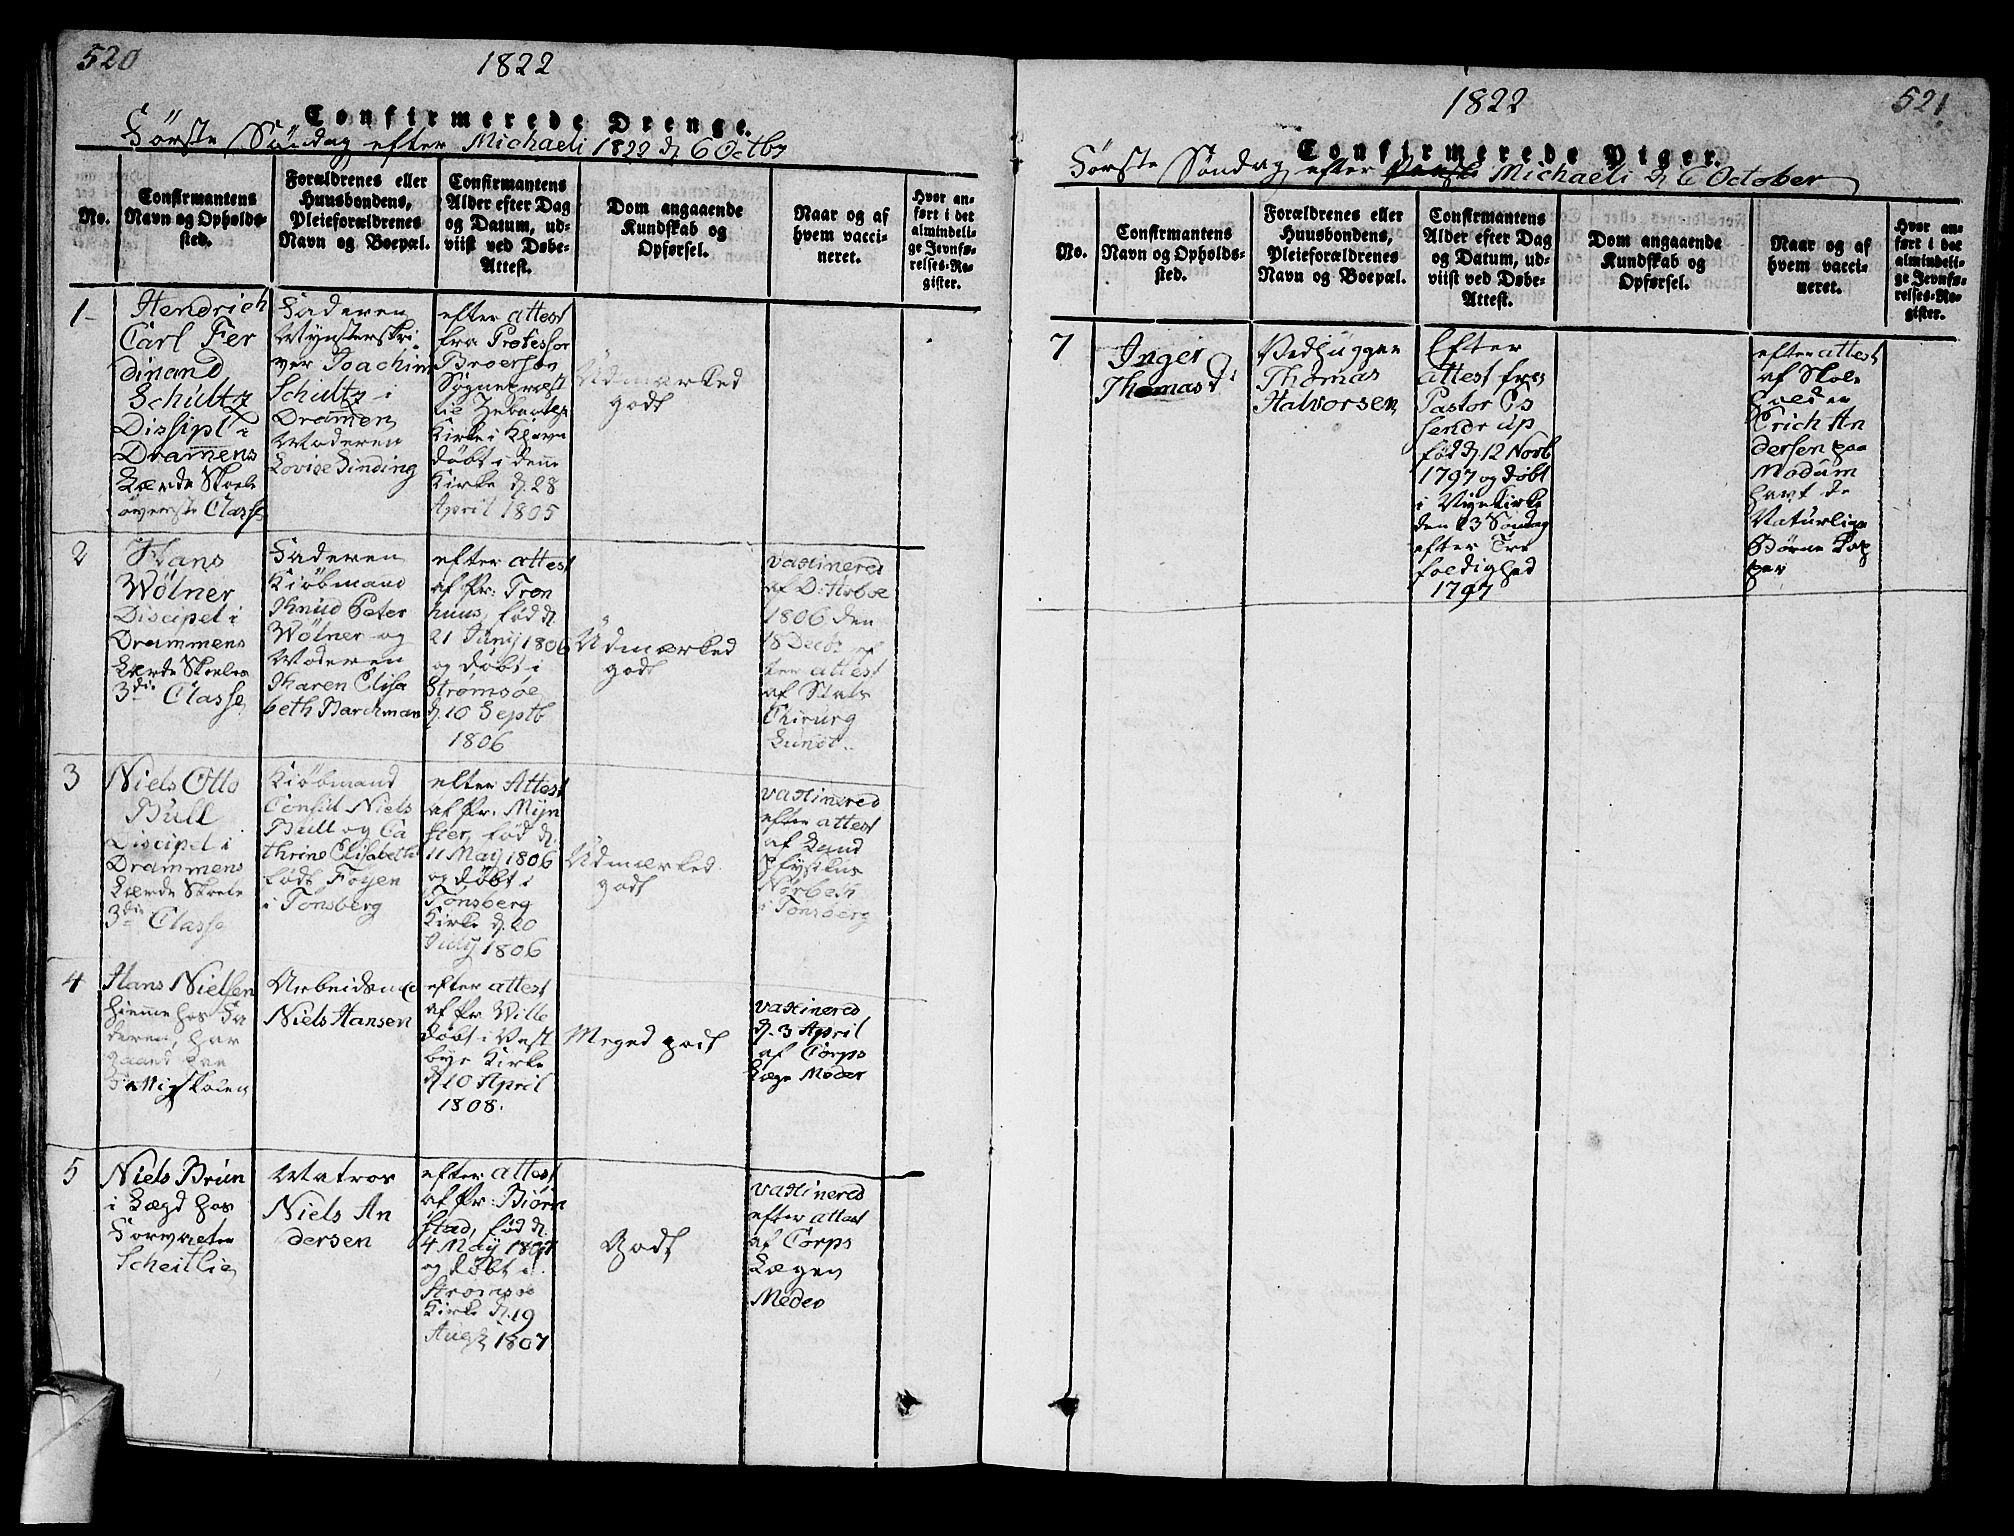 520
1822
Confirmerede Drenge.
Første Søndag efter Michaeli 1822 d. 6 Octbr
No.
Confirmantens
Navn og Opholds-
sted.
Forældrenes eller
Huusbondens,
Pleieforældrenes
Navn og Boepæl.
Confirmantens
Alder efter Dag
og Datum, ud-
viist ved Døbe-
Attest.
Dom angaaende
Kundskab og
Opførsel.
Naar og af
hvem vacci-
neret.
Hvor an-
ført i det
almindeli-
ge Jevnfø-
relses-Re-
gister.
1
Hendrich
Carl Fer
dinand
Schultz
Dissipl i
Dramens
Lærde Skole
øverste Classe
Faderen
Mynterskri
ver Joachim
Schultz i
Dramen
Moderen
Lovise Sinding
efter attest
fra Professor
Broerson
Sognepræst
Kirke i
døbt i denne
Kirke d. 28
April 1805
Udmærked
godt
2
Hans
Wölner
Discipel i
Drammens
Lærde Skoles
3die Classe
Faderen
Kiöbmand
Knud Peter
Wölner og
Moderen
Karen Elisa
beth Barchman
efter attest
af Pr: Tron
huus, fød d.
21 Juny 1806
og døbt i
Strømsøe
d. 10 Septb
1806
Udmærked
godt
vaxinered
af D: Arboe
1806 den
18 Decbr ef
ter attest
af Stats
Chirurg
Lundt.
3
Niels Otto
Bull
Discipel i
Drammens
Lærde Skole
3die Classe
Kiöbmand
Consul Niels
Bull og Ca
thrine Elisabeth
født Foyen
i Tonsberg
efter Attest
af Pr. Mijn
ster, fød d.
11 May 1806
og døbt i
Tonsberg
Kirke d. 20
July 1806
Udmærked
godt
vaxinered
efter attest
af Land
physikus
Norbech
i Tonsberg
4
Hans Nielsen
hiemme hos Fa
deren, har
gaaed paa
Arbeidsmd
Niels Hansen
efter attest
af Pr Wille
døbt i Vest
bye Kirke
d. 10 April
1808.
Meged godt
vaxinered
d. 3 April
af Corps
Læge Meder
5
Niels Brun
i Lægd hos
Forvalter
Scheitlie
Matros
Niels An
dersen
efter attest
af Pr: Biörn
stad, fød d.
4 May 1807
og døbt i
Strømsøe
Kirke d. 19
Aug 1807
Godt
vaxinered
efter attest
af Corps
Lægen
Meder
1822
521
Confirmerede Piger.
Første Søndag efter Michaeli d. 6 October
No.
Confirmantens
Navn og Opholds-
sted.
Forældrenes eller
Huusbondens,
Pleieforældrenes
Navn og Boepæl.
Confirmantens
Alder efter Dag
og Datum, ud-
viist ved Døbe-
Attest.
Dom angaaende
Kundskab og
Opførsel.
Naar og af
hvem vacci-
neret.
Hvor an-
ført i det
almindeli-
ge Jevnfø-
relses-Re-
gister.
7
Inger
Thomasd:
Vedhugger
Thomas
Halvorsen
Efter
attest fra
Pastor Es
sendrup
fød d. 12 Novb
1797 og døbt
i Nykirke
den 23 Søndag
efter Tre
foldighed
1797
efter attest
af Skole
holder
Erich An
dersen paa
Modum
havt de
Naturlige
Børne Kop
per